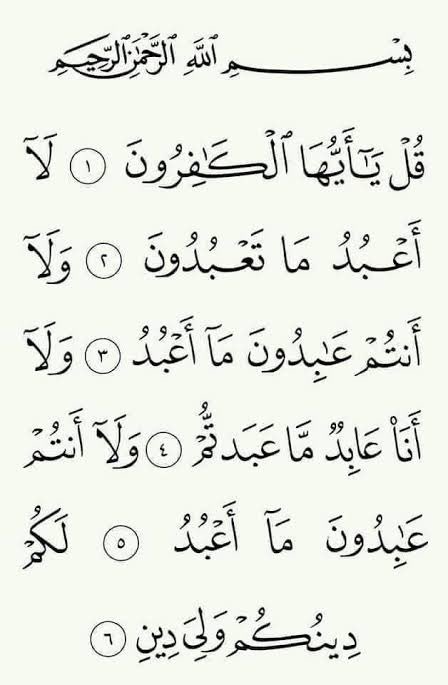 بِسْمِ ٱللَّهِ ٱلرَّحْمَٰنِ ٱلرَّحِيمِ
قُلْ يَٰٓأَيُّهَا ٱلْكَٰفِرُونَ ١ لَآ
أَعْبُدُ مَا تَعْبُدُونَ ٢ وَلَآ
أَنتُمْ عَٰبِدُونَ مَآ أَعْبُدُ ٣ وَلَآ
أَنَا۠ عَابِدٌ مَّا عَبَدتُّمْ ٤ وَلَآ أَنتُمْ
عَٰبِدُونَ مَآ أَعْبُدُ ٥ لَكُمْ
دِينُكُمْ وَلِىَ دِينِ ٦